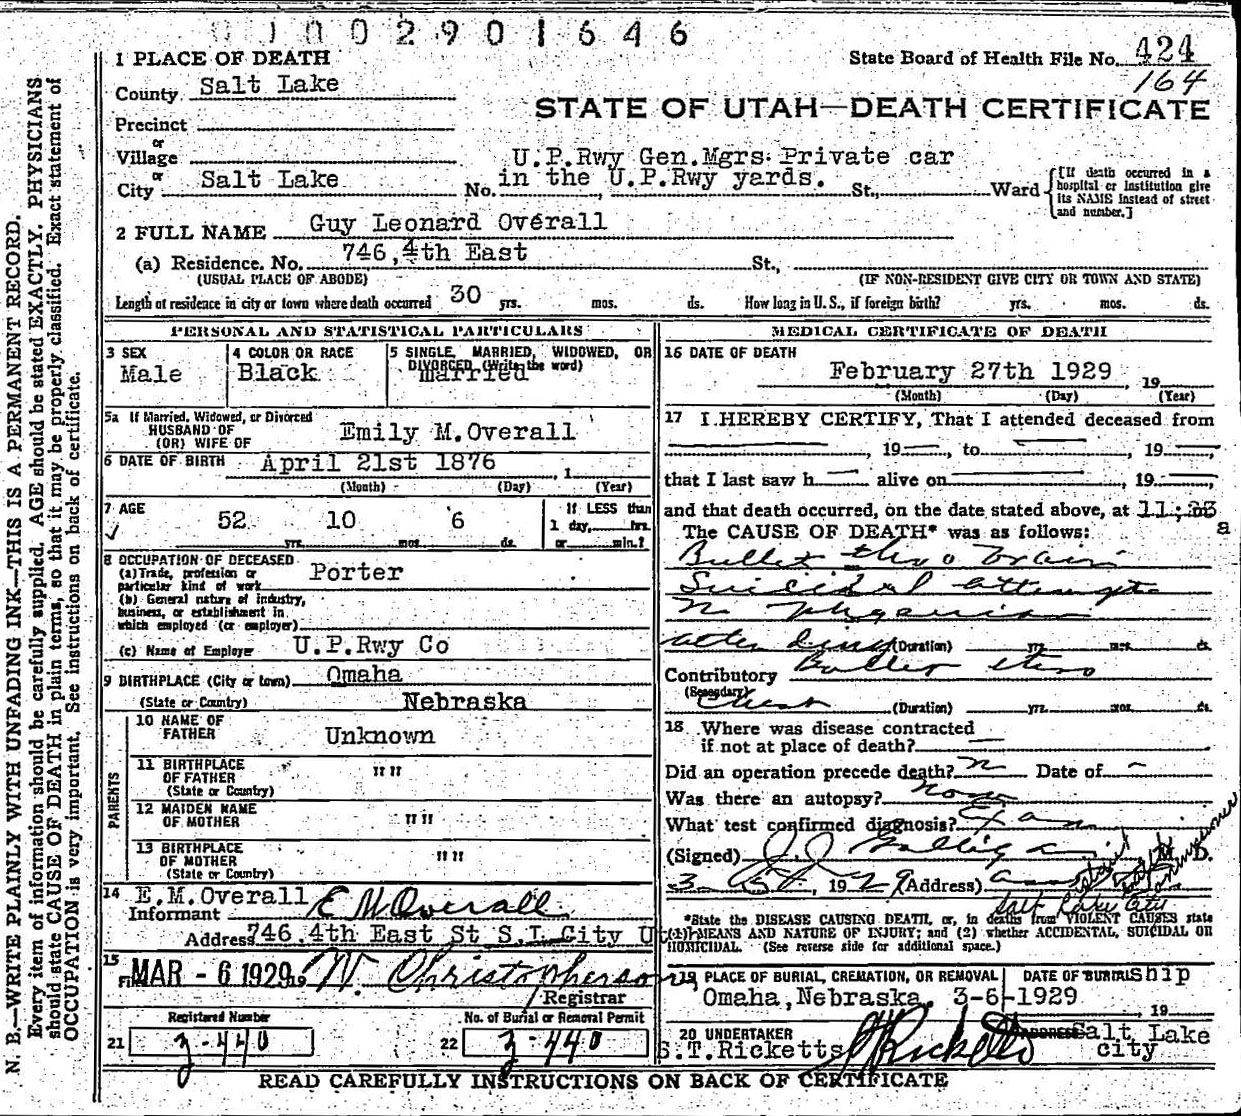 01002901646
1 PLACE OF DEATH
State Board of Health File No. 424
164
County Salt Lake
STATE OF UTAH—DEATH CERTIFICATE
Precinct
or
Village
U.P.Rwy Gen.Mgrs. Private car
or
City Salt Lake No. in the U.P.Rwy yards. St., Ward
[If death occurred in a hospital or institution give its NAME instead of street and number.]
2 FULL NAME Guy Leonard Overall
(a) Residence. No. 746, 4th East St.,
(USUAL PLACE OF ABODE) (IF NON-RESIDENT GIVE CITY OR TOWN AND STATE)
Length of residence in city or town where death occurred 30 yrs. mos. ds. How long in U. S., if foreign birth? yrs. mos. ds.
PERSONAL AND STATISTICAL PARTICULARS
3 SEX
Male
4 COLOR OR RACE
Black
5 SINGLE, MARRIED, WIDOWED, OR DIVORCED (Write the word)
married
5a If Married, Widowed, or Divorced
HUSBAND OF
(OR) WIFE OF Emily M.Overall
6 DATE OF BIRTH April 21st 1876 , 1
(Month) (Day) (Year)
7 AGE
52 yrs. 10 mos. 6 ds.
If LESS than
1 day, hrs.
or min.?
8 OCCUPATION OF DECEASED
(a) Trade, profession or
particular kind of work Porter
(b) General nature of industry,
business, or establishment in
which employed (or employer)
(c) Name of Employer U.P.Rwy Co
9 BIRTHPLACE (City or town) Omaha
(State or Country) Nebraska
PARENTS
10 NAME OF
FATHER Unknown
11 BIRTHPLACE
OF FATHER " "
(State or Country)
12 MAIDEN NAME
OF MOTHER " "
13 BIRTHPLACE
OF MOTHER " "
(State or Country)
14 E.M.Overall
Informant E M Overall
Address 746, 4th East St S.L.City U
15
Filed MAR - 6 1929 19 W. Christopherson
Registrar
Registered Number
21 3-440
No. of Burial or Removal Permit
22 3-440
MEDICAL CERTIFICATE OF DEATH
16 DATE OF DEATH
February 27th 1929 , 19
(Month) (Day) (Year)
17 I HEREBY CERTIFY, That I attended deceased from
, 19 , to , 19 ,
that I last saw h alive on , 19 ,
and that death occurred, on the date stated above, at 11;23 m
a
The CAUSE OF DEATH* was as follows:
Bullet thro brain
Suicidal attempt
No physician
attending (Duration) yrs. mos. ds.
Contributory Bullet thro
(Secondary) Chest (Duration) yrs. mos. ds.
18 Where was disease contracted
if not at place of death?
Did an operation precede death? n Date of
Was there an autopsy? none
What test confirmed diagnosis? Exam
(Signed) J. J. Galligan M. D.
3. 1st , 1929 (Address) Salt Lake City
*State the DISEASE CAUSING DEATH, or, in deaths from VIOLENT CAUSES state
(1) MEANS AND NATURE OF INJURY; and (2) whether ACCIDENTAL, SUICIDAL OR
HOMICIDAL. (See reverse side for additional space.)
19 PLACE OF BURIAL, CREMATION, OR REMOVAL
Omaha,Nebraska.
DATE OF BURIAL ship
3-6-1929 19
20 UNDERTAKER
S.T.Ricketts S T Ricketts
ADDRESS Salt Lake
city
READ CAREFULLY INSTRUCTIONS ON BACK OF CERTIFICATE
N. B.—WRITE PLAINLY WITH UNFADING INK—THIS IS A PERMANENT RECORD.
Every item of information should be carefully supplied. AGE should be stated EXACTLY. PHYSICIANS
should state CAUSE OF DEATH in plain terms, so that it may be properly classified. Exact statement of
OCCUPATION is very important. See instructions on back of certificate.